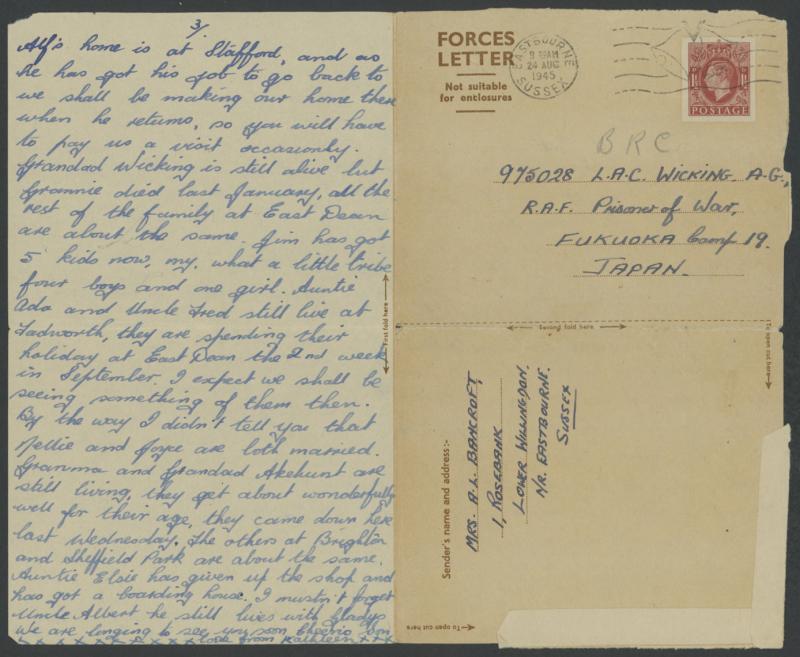 3/
Alf's home is at Stafford, and as
he has got his job to go back to
we shall be making our home there
when he returns, so you will have
to pay us a visit occasionly.
Grandad Wicking is still alive but
Grannie died last January, all the
rest of the family at East Dean
are about the same. Jim has got
5 kids now, my. what a little tribe
four boys and one girl. Auntie
Ada and Uncle Fred still live at
Tadworth, they are spending their
holiday at East Dean the 2nd week
in September. I expect we shall be
seeing something of them then.
By the way I didn't tell you that
Nellie and Joyce are both married.
Granma and Grandad Akehurst are
still living, they get about wonderfully
well for their age, they came down here
last Wednesday. The others at Brighton
and Sheffield Park are about the same.
Auntie Elsie has given up the shop and
has got a boarding house. I mustn't forget
Uncle Albert he still lives with Gladys
We are longing to see you soon cheerio Son
love from Kathleen
First fold here
FORCES
LETTER
Not suitable
for enclosures
EASTBOURNE
24 AUG
1945
SUSSEX
POSTAGE
BRC
975028 L.A.C. WICKING A.G.,
R.A.F. Prisoner of War,
FUKUOKA Camp 19.
JAPAN.
Second fold here
To open cut here
Sender's name and address:-
MRS. A.L. BANCROFT,
1, ROSEBANK
LOWER WILLINGDON.
NR. EASTBOURNE.
SUSSEX
To open cut here